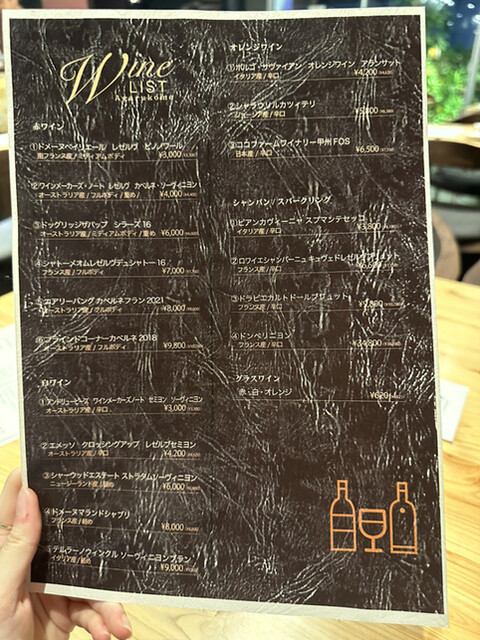 Wine
LIST
赤ワイン
①ドメーヌベイリエール レゼルヴ ピノノワール
南フランス産 / ミディアムボディ ¥3,000
②ワインメーカーズ・ノート レゼルヴ カベルネ・ソーヴィニヨン
オーストラリア産 / フルボディ / 重め ¥4,000
③ドッグリッジザパップ シラーズ 16
オーストラリア産 / ミディアムボディ / 重め ¥6,000
④シャトーメオムレゼルヴデュシャトー 16
フランス産 / フルボディ ¥7,000
カベルネフラン 2021
オーストラリア産 / フルボディ ¥8,000
⑥ブラインドコーナーカベルネ 2018
オーストラリア産 / フルボディ ¥9,800
白ワイン
①アンドリューピース ワインメーカーズノート セミヨン ソーヴィニヨン
オーストラリア産 / 辛口 ¥3,000
②エメッソ クロッシングアップ レゼルブセミヨン
オーストラリア産 / 辛口 ¥4,200
③シャーウッドエステート ストラタムソーヴィニヨン
ニュージーランド産 ¥6,000
④ドメーヌマランドシャブリ
フランス産 / 軽め ¥8,000
ソーヴィニヨンブラン
イタリア産 / 軽め ¥9,000
オレンジワイン
①ボルゴ・サヴァイアン オレンジワイン アランサット
イタリア産 / 辛口 ¥4,200
②シャラウリルカツィテリ
ジョージア産 / 辛口
③ココファームワイナリー甲州 FOS
日本産 / 辛口 ¥6,500
シャンパン // スパークリング
①ビアンカヴィーニャ スプマンテセッコ
イタリア産 / 辛口 ¥3,800
②ロワイエシャンパーニュ キュヴェドレゼルヴブリュット
フランス産 / 辛口
③ドラピエカルトドールブリュット
フランス産 / 辛口
④ドンペリニヨン
フランス産 / 辛口
グラスワイン
赤・白・オレンジ ¥620